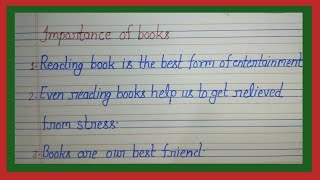 Importance of books
1- Reading book is the best form of entertainment
2- Even reading books help us to get relieved
from stress.
3- Books are our best friend.